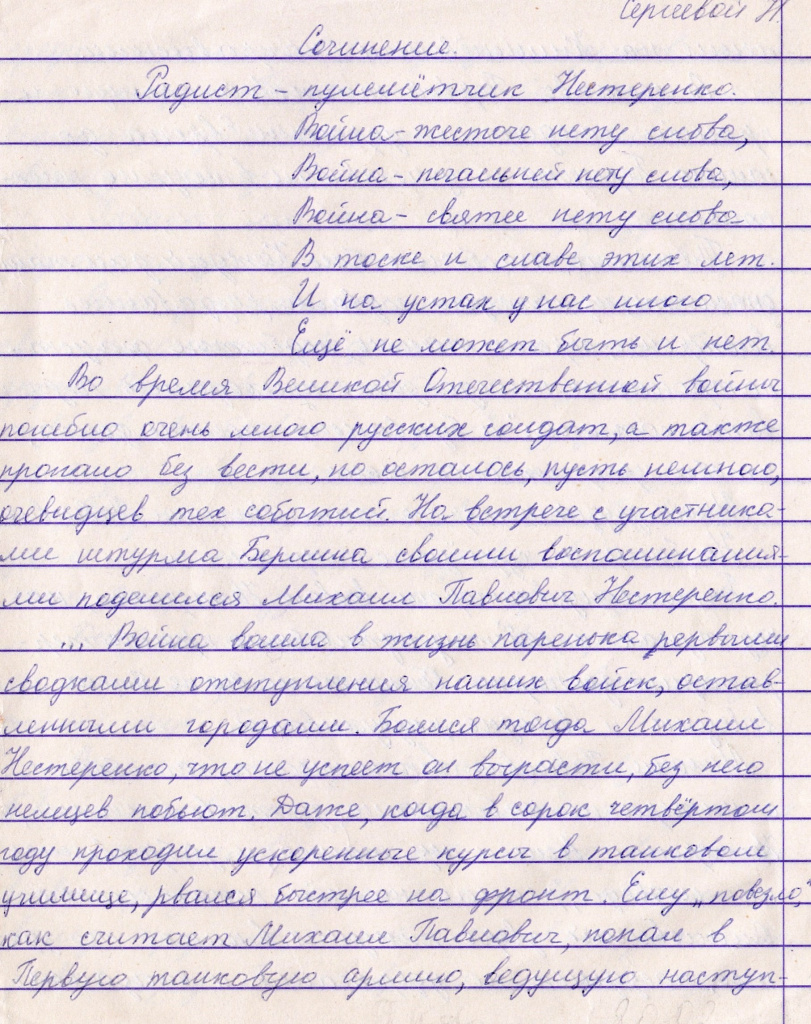 Сергеевой Н.
Сочинение.
Радист - пулемётчик Нестеренко.
Война - жесточе нету слова,
Война - печальней нету слова,
Война - святее нету слова
В тоске и славе этих лет.
И на устах у нас иного
Ещё не может быть и нет.
Во время Великой Отечественной войны
погибло очень много русских солдат, а также
пропало без вести, но осталось, пусть немного,
очевидцев тех событий. На встрече с участника-
ми штурма Берлина своими воспоминания-
ми поделился Михаил Павлович Нестеренко.
... Война вошла в жизнь паренька первыми
сводками отступления наших войск, остав-
ленными городами. Боялся тогда Михаил
Нестеренко, что не успеет он вырасти, без него
немцев побьют. Даже, когда в сорок четвёртом
году проходил ускоренные курсы в танковом
училище, рвался быстрее на фронт. Ему „повезло,"
как считает Михаил Павлович, попал в
Первую танковую армию, ведущую наступ-